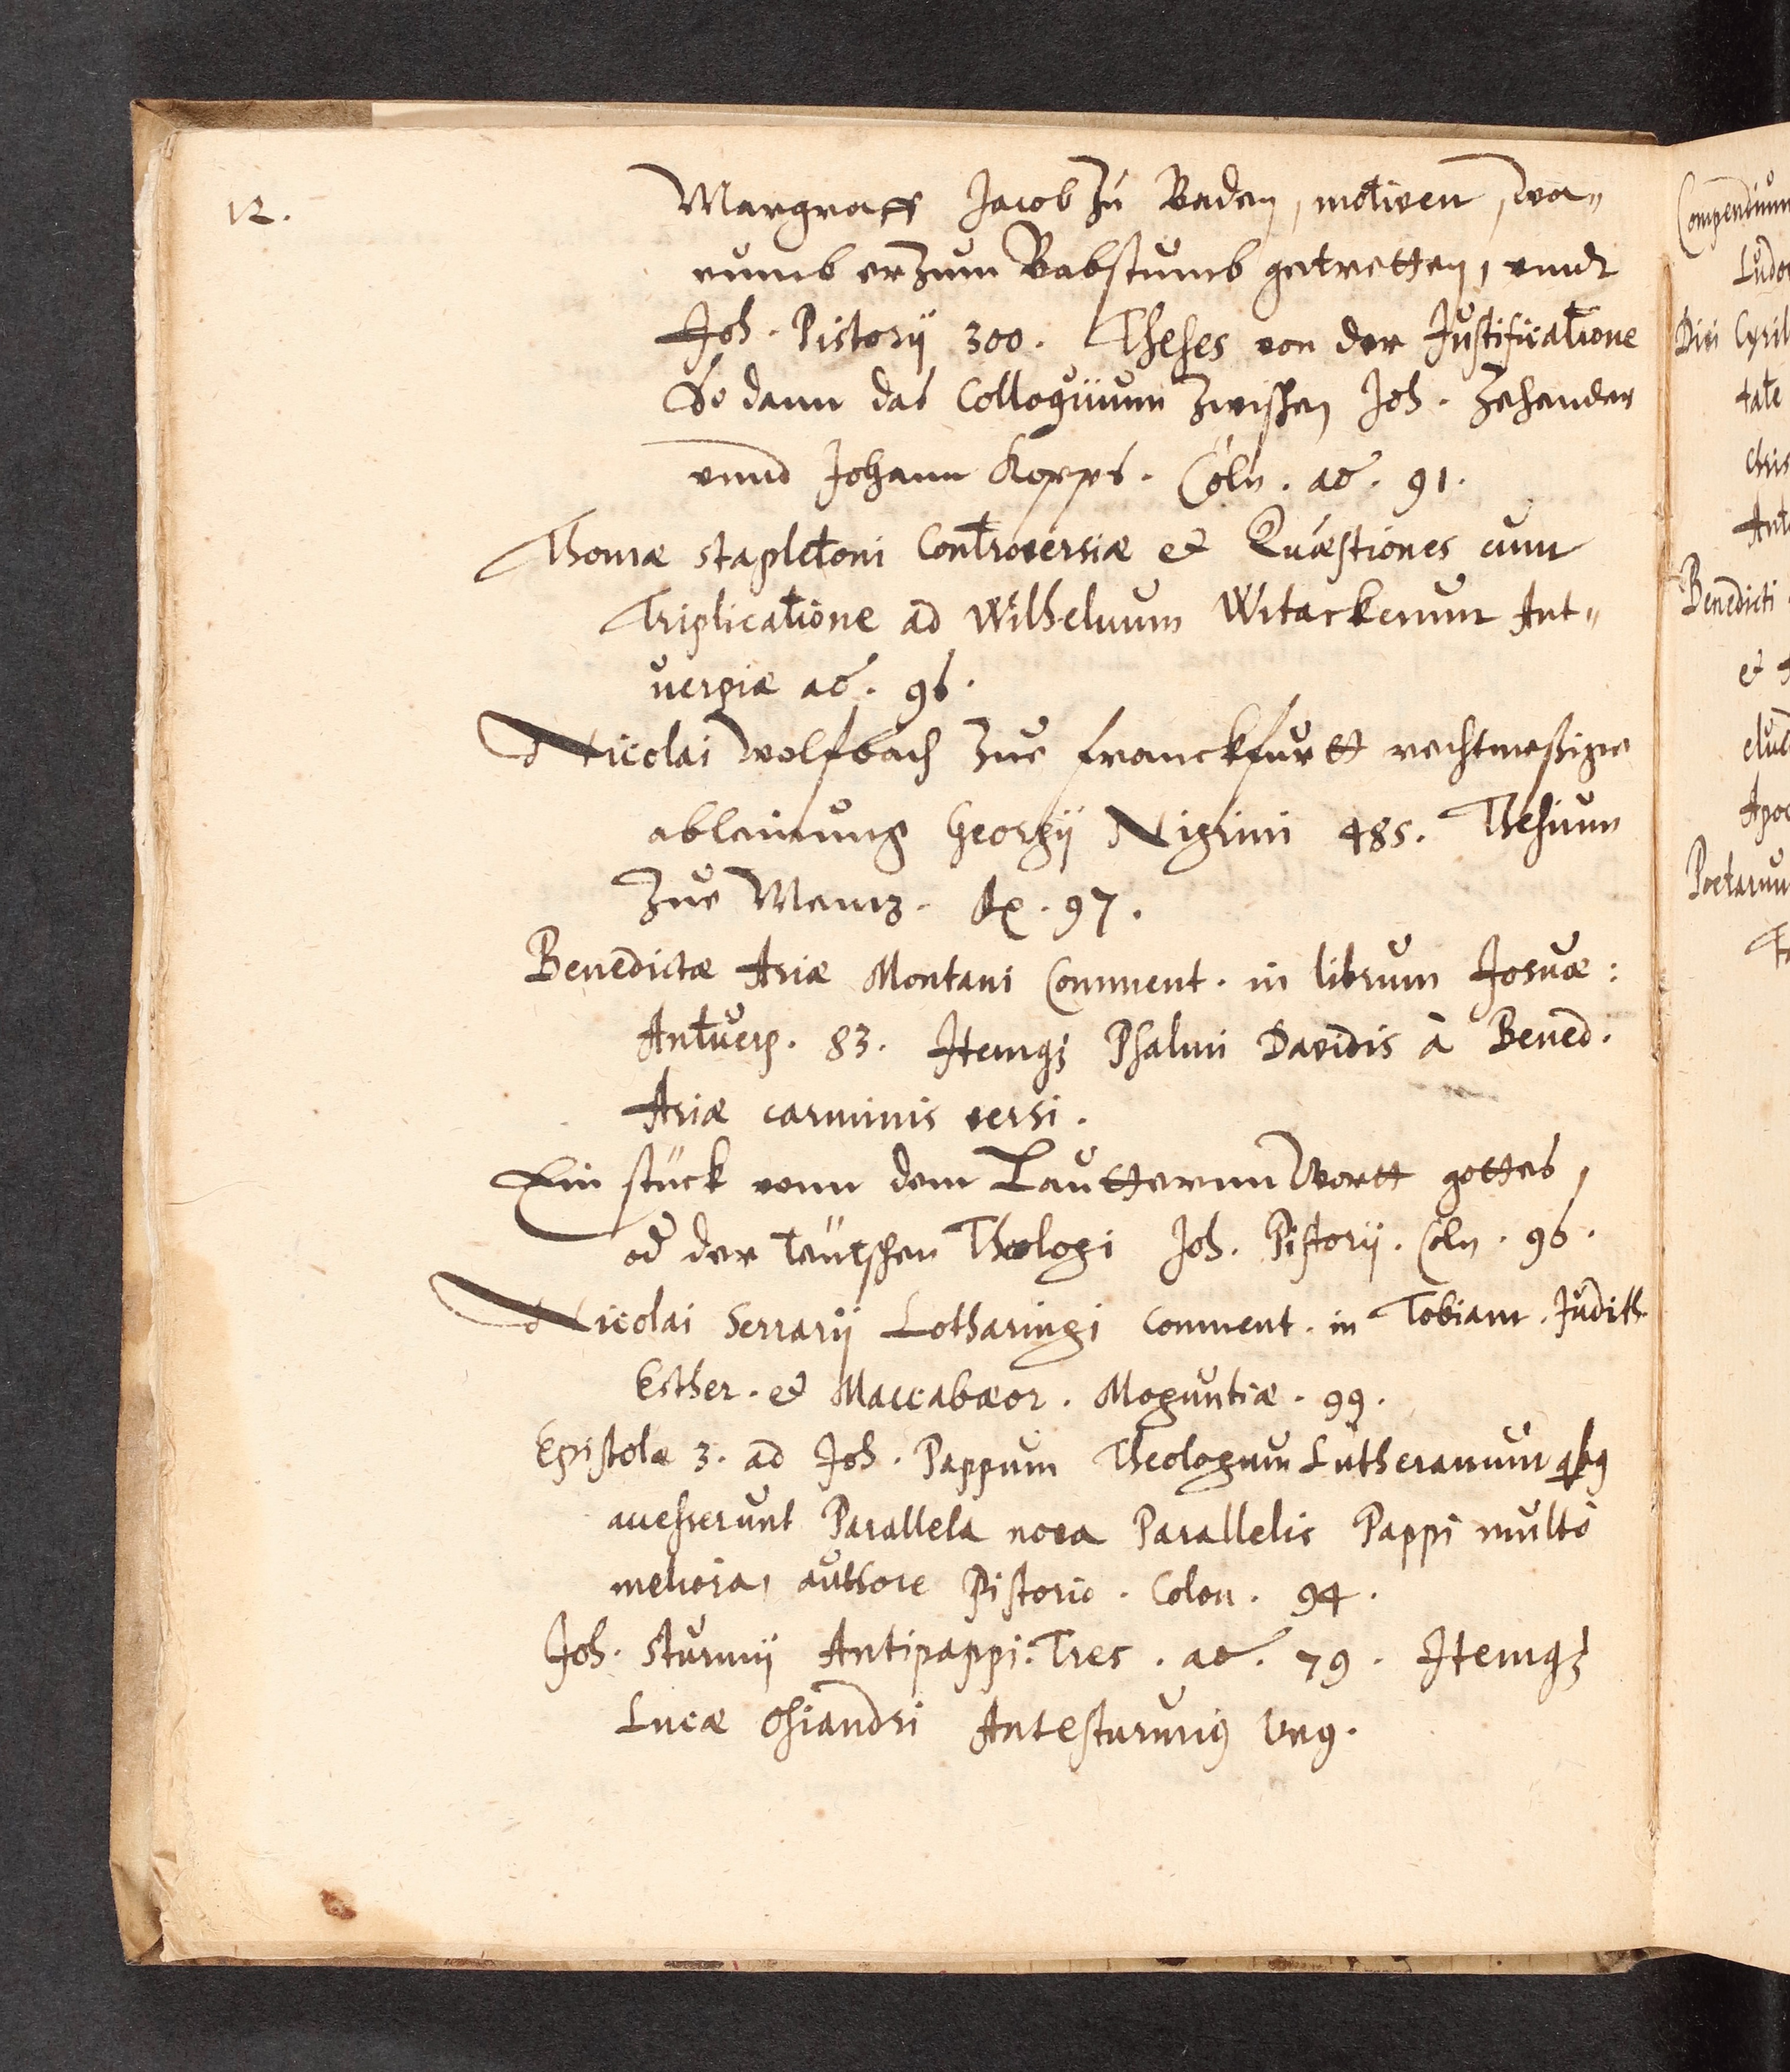 12.
Margraff Jacob zú Baden, motiven, wa„
rumb er zum Babstumb getretten, unnd
Joh. Pistorij 300. Theses von der Justificatione
So dann das Colloquium zwischen Joh. Zehender
unnd Johann Kopps. Cöln. ao. 91.
Thomæ Stapletoni Controversiæ et Quæstiones cum
Triplicatione ad Wilhelmum Witackerum Ant„
uerpiæ ao. 96.
Nicolai Wolfbach zue Franckfurtt rechtmeßige
ablainung Georgij Nigrini 485. Thesium
zue Meintz. Ao. 97.
Benedictæ Ariæ Montani Comment. in librum Josuæ:
Antuerp. 83. Itemq; Psalmi Davidis à Bened.
Ariæ carminis versi.
Ein stück vonn dem Lautternn Wortt gottes,
od der teütschen Theologi Joh. Pistorij. Cöln. 96.
Nicolai Serrarij Lotharingi Comment. in Tobiam. Judith
Esther. et Maccabæor. Moguntiæ. 99.
Epistolæ 3. ad Joh. Pappum Theologum Lutheranum qbg
accesserunt Parallela nova Parallelis Pappi multò
meliora, authore Pistorio. Colon. 94.
Joh. Sturmij Antipappi: Tres. ao. 79. Itemq;
Lucæ Osiandri Antesturmig Vng.
Compendium
Ludo
Divi Cyril
tate
chris
Ant
Benedicti
et
eluc
Apoc
Poetarum